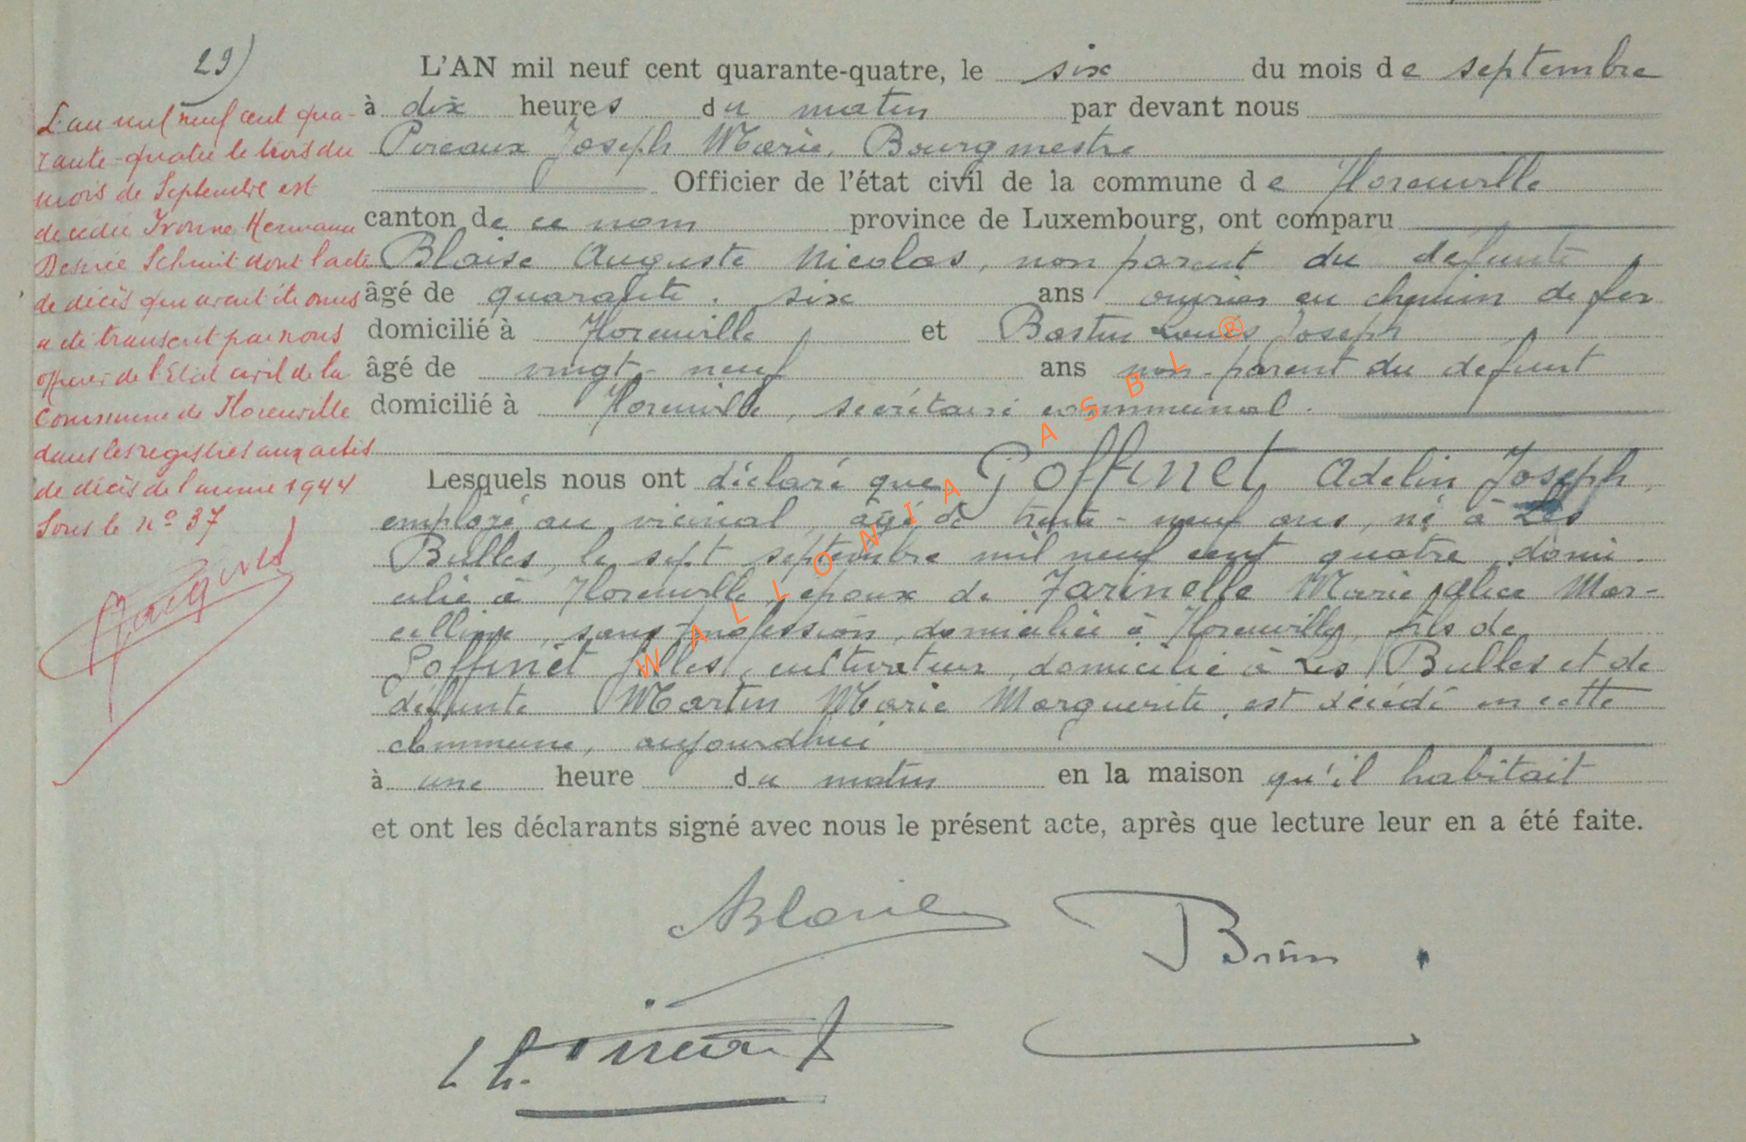 29)
L'an mil neuf cent qua-
rante-quatre le trois du
mois de Septembre est
décédée Yvonne Hermann
Desirée Schmit dont l'acte
de décès qui avait été omis
a été transcrit par nous
officier de l'Etat civil de la
Commune de Florenville
dans les registres aux actes
de décès de l'année 1944
sous le no 37
Jacques
L'AN mil neuf cent quarante-quatre, le six du mois de septembre
à dix heures du matin par devant nous
Joseph Marie, Bourgmestre
Officier de l'état civil de la commune de Florenville
canton de ce nom province de Luxembourg, ont comparu
Blaise Auguste Nicolas, non parent du défunt
âgé de quarante-six ans ouvrier au chemin de fer
domicilié à Florenville et Bastin Louis Joseph
âgé de vingt-neuf ans non-parent du défunt
domicilié à Florenville, secrétaire communal.
Lesquels nous ont déclaré que Goffinet Adelin Joseph,
employé au vicinal, âgé de trente-neuf ans, né à Les
Bulles, le sept septembre mil neuf cent quatre, domi-
cilié à Florenville, époux de Farinelle Marie Alice Mar-
celline, sans profession, domiciliée à Florenville, fils de
Goffinet Jules, cultivateur, domicilié à Les Bulles et de
défunte Martin Marie Marguerite, est décédé en cette
commune, aujourdhui
à une heure du matin en la maison qu'il habitait
et ont les déclarants signé avec nous le présent acte, après que lecture leur en a été faite.
ABlaise
WALLONIA ASBL ®